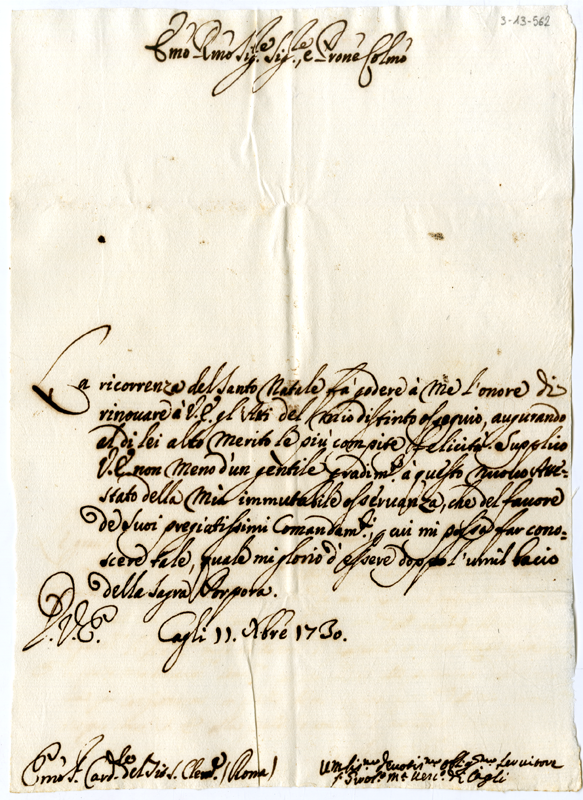 3-13-562
Emõ Rmõ Sig.re Sig.re, e Prone Colmõ
La ricorrenza del Santo Natale fà godere à Me l'onore di
rinouare à V.E. gl'Atti del mio distinto ossequio, augurando
al di lei alto Merito le più compite Felicità. Supplico
V.E. non Meno d'un gentile gradim.to à questo nuouo Atte=
stato della Mia immutabile osseruanza, che del fauore
de suoi pregiatissimi Comandam.ti, p cui mi possa far cono=
scere tale, quale mi glorio d'essere doppo l'umil bacio
della Sagra Porpora.
D. V. E. Cagli 11. Xbre 1730.
Emõ S. Card.le del Tit. S. Clem.te (Roma)
Umliss.mo Deuotis.mo Obblig.mo Seruitore
Vesc.o di Cagli